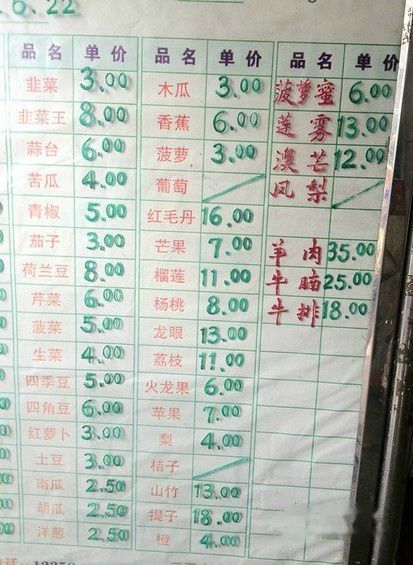 6.22
品名 单价 品名 单价 品名 单价
韭菜 3.00 木瓜 3.00 菠萝蜜 6.00
韭菜王 8.00 香蕉 6.00 莲雾 13.00
蒜台 6.00 菠萝 3.00 澳芒 12.00
苦瓜 4.00 葡萄 凤梨
青椒 5.00 红毛丹 16.00
茄子 3.00 芒果 7.00 羊肉 35.00
荷兰豆 8.00 榴莲 11.00 牛腩 25.00
芹菜 6.00 杨桃 8.00 牛排 18.00
菠菜 5.00 龙眼 13.00
生菜 4.00 荔枝 11.00
四季豆 5.00 火龙果 6.00
四角豆 6.00 苹果 7.00
红萝卜 3.00 梨 4.00
土豆 3.00 桔子
南瓜 2.50 山竹 13.00
胡瓜 2.50 提子 18.00
洋葱 2.50 橙 4.00